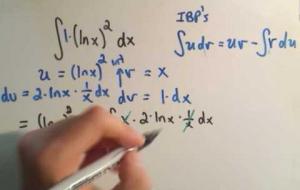 IBP's
∫1·(lnx)² dx
∫udv = uv - ∫vdu
u = (lnx)² v = x
du = 2·lnx·1/x dx dv = 1·dx
= (ln x·2·lnx·1/x dx